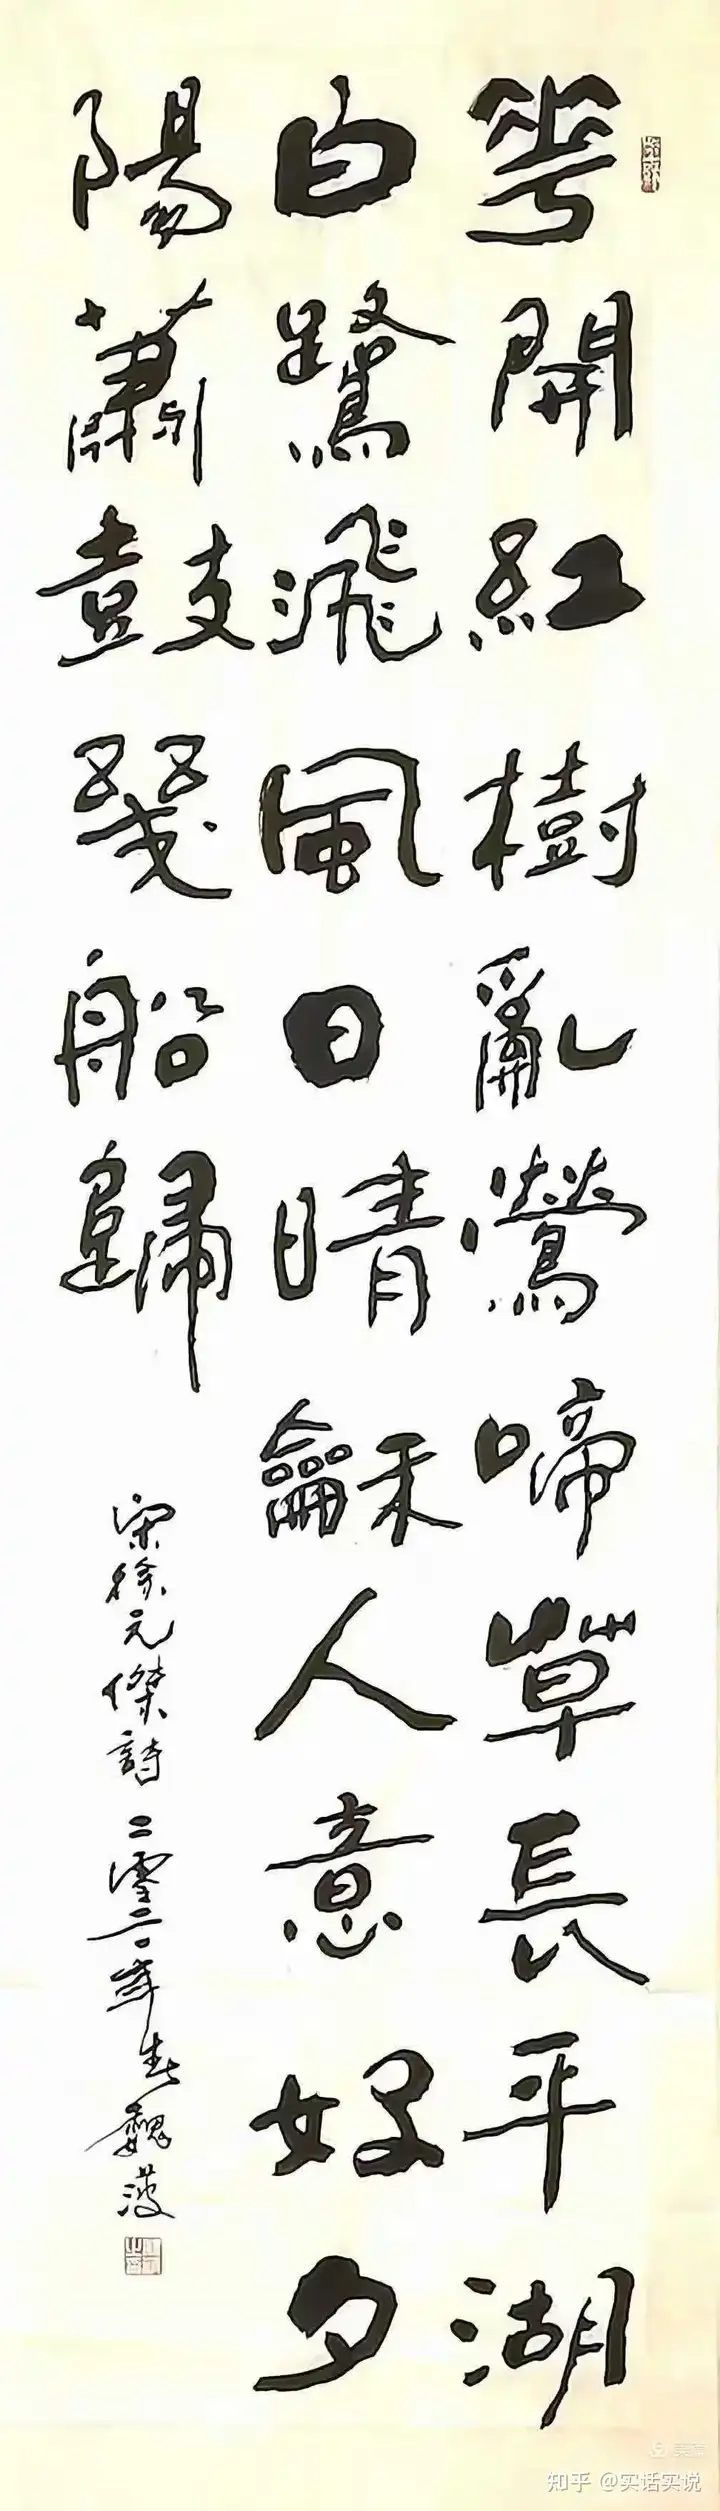 華開紅樹亂鶯啼草長平湖
白鷺飛風日晴龢人意好夕
陽蕭鼓幾船歸
宋徐元傑詩二零二年春魏
知乎 @实话实说